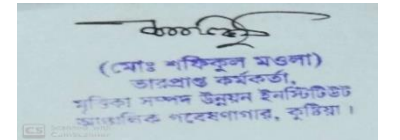 (মোঃ শফিকুল মওলা)
ভারপ্রাপ্ত কর্মকর্তা,
মৃত্তিকা সম্পদ উন্নয়ন ইনস্টিটিউট
আঞ্চলিক গবেষণাগার, কুষ্টিয়া।
CS CamScanner